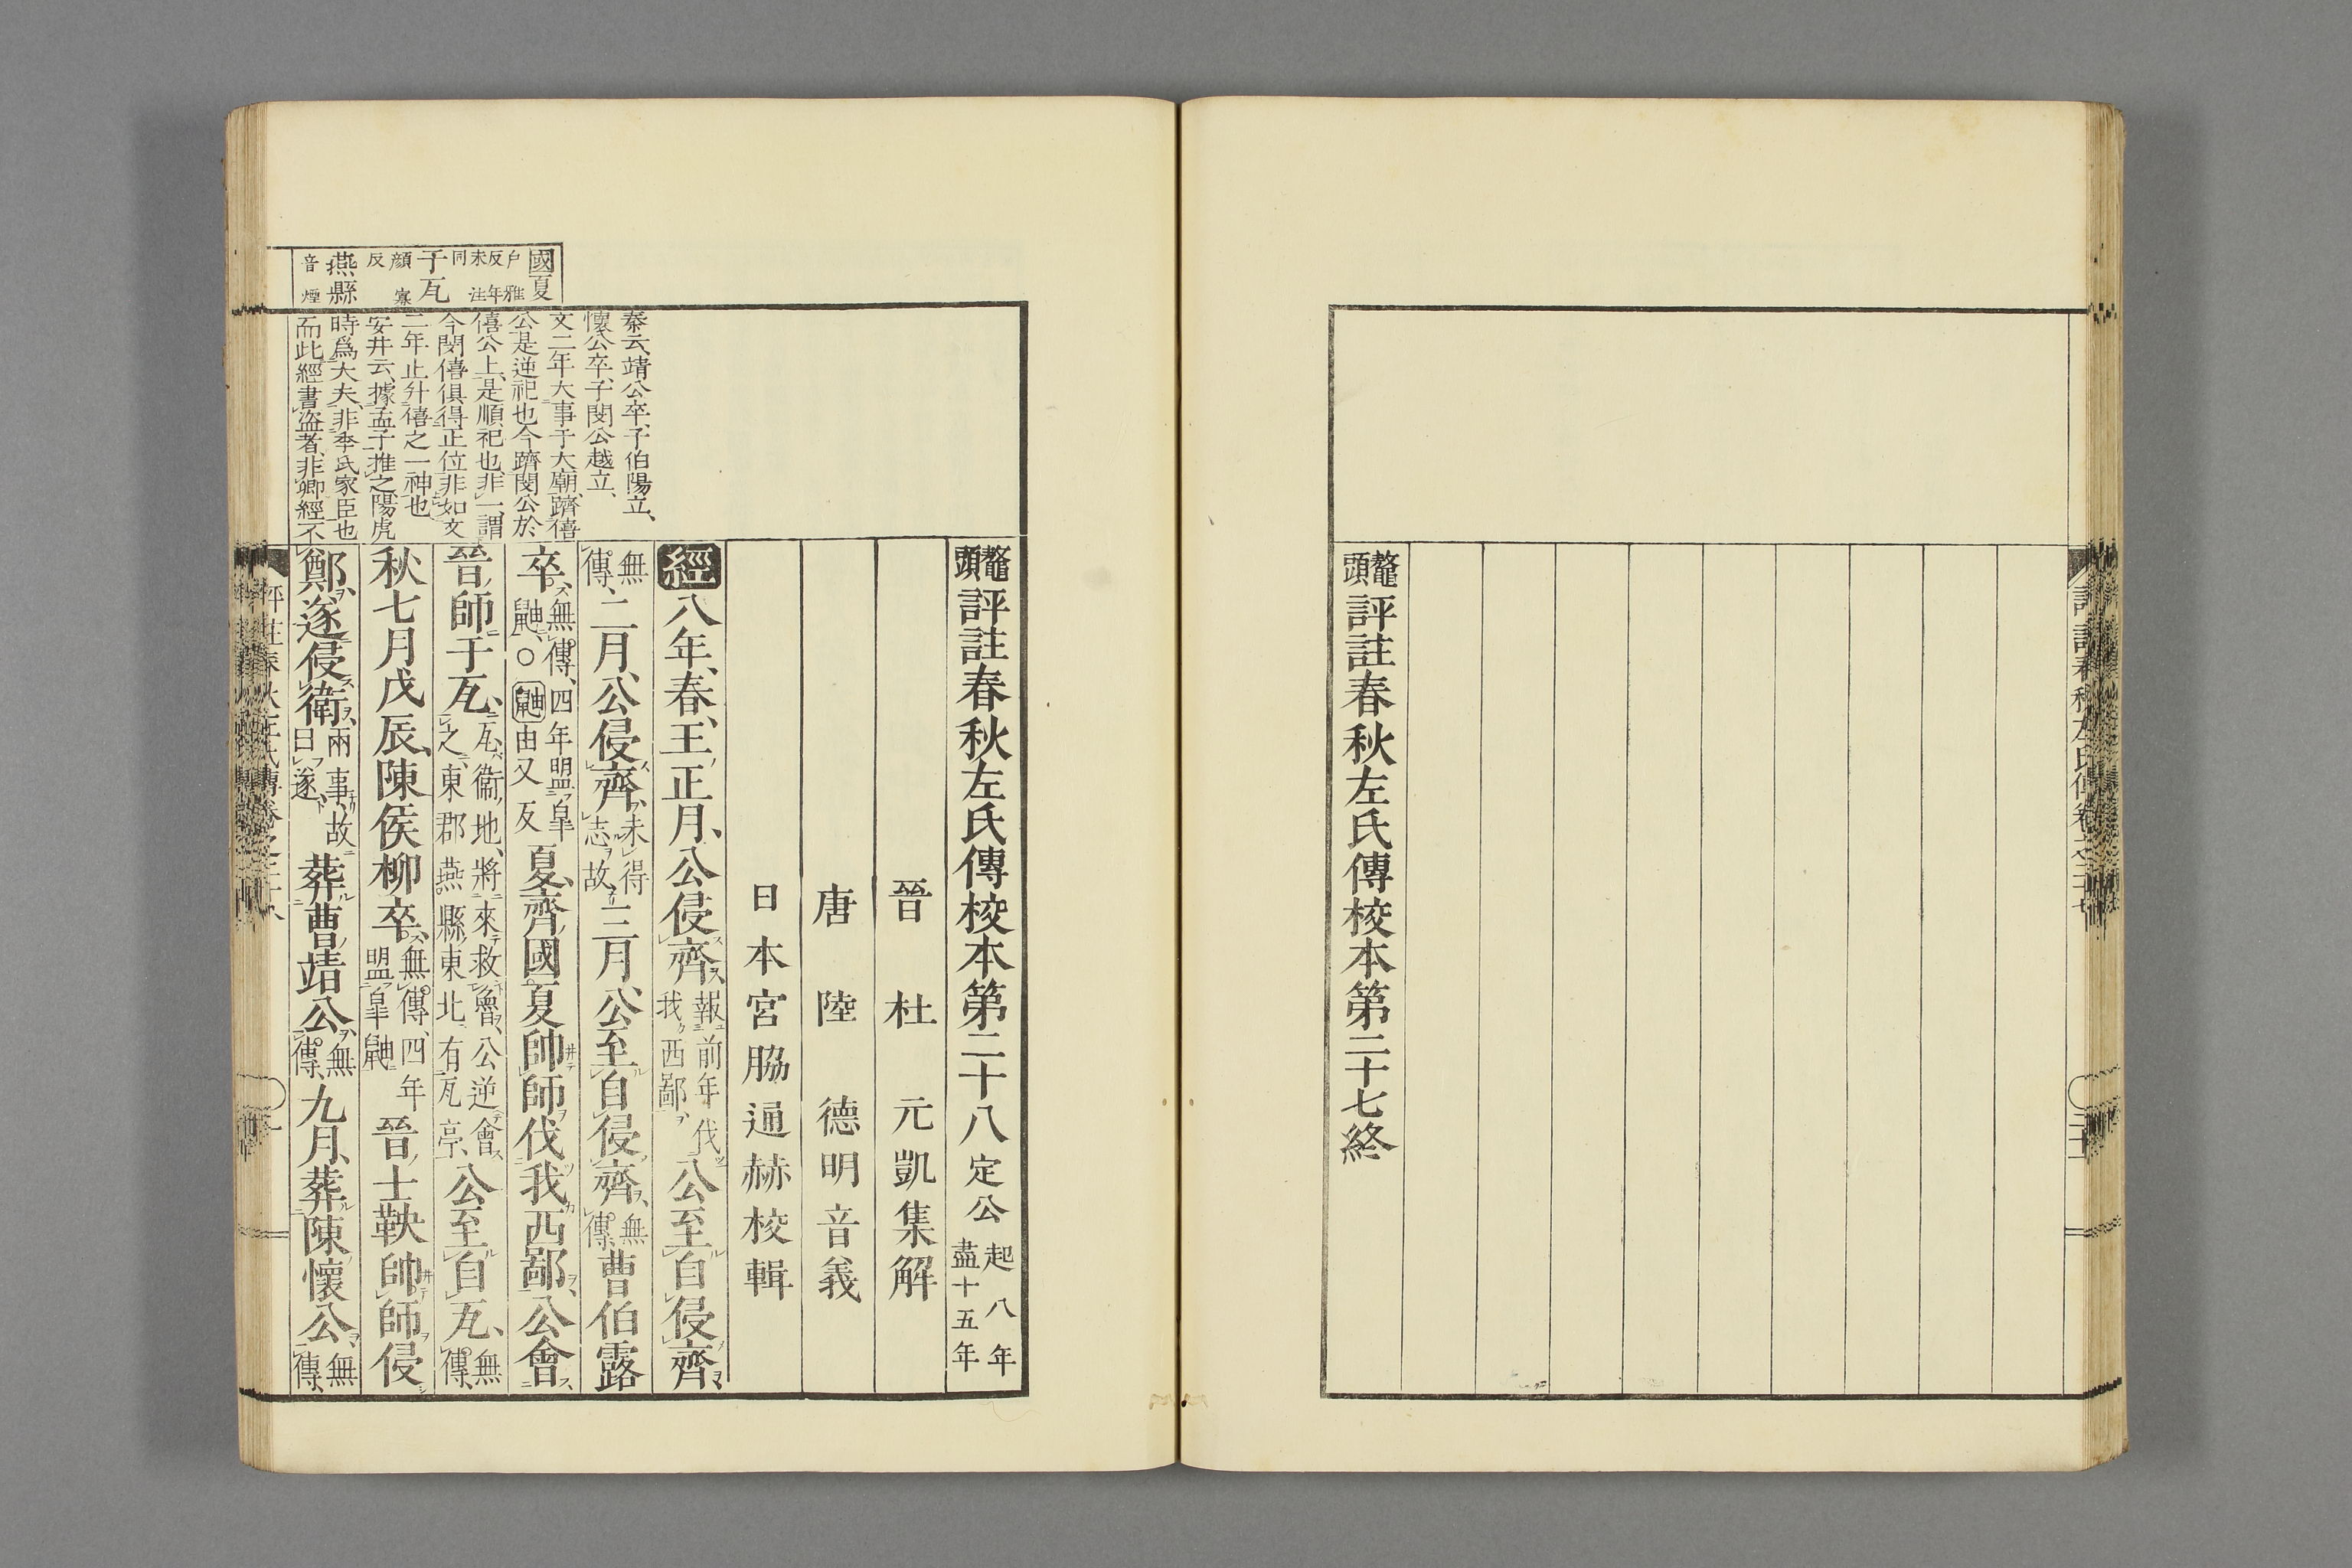 鼇頭評註春秋左氏傳校本第二十七終
鼇頭評註春秋左氏傳校本第二十八 定公 起八年盡十五年
晉 杜 元凱集解
唐 陸 德明音義
日本宮脇通赫校輯
經八年、春、王正月、公侵齊、報前年伐我西鄙、公至自侵齊、
無傳、二月、公侵齊、未得志故、三月、公至自侵齊、無傳、曹伯露
卒、無傳、四年盟皐鼬、○鼬由又反夏、齊國夏帥師伐我西鄙、公會
晉師于瓦、瓦、衞地、將來救魯、公逆會之、東郡燕縣東北有瓦亭、公至自瓦、無傳、
秋七月戊辰、陳侯柳卒、無傳、四年盟皐鼬晉士鞅帥師侵
鄭、遂侵衞、兩事、故曰遂、葬曹靖公、無傳、九月、葬陳懷公、無傳、
秦云、靖公卒、子伯陽立、
懷公卒、子閔公越立、
文二年大事于大廟、躋僖
公是逆祀也今躋閔公於
僖公上、是順祀也、非一謂
今閔僖俱得正位非如文
二年止升僖之一神也
安井云、據孟子推之、陽虎
時爲大夫、非季氏家臣也
而此經書盜者、非卿經不
國夏 戶雅反年末注同
于瓦 顏寡反
燕縣 音煙